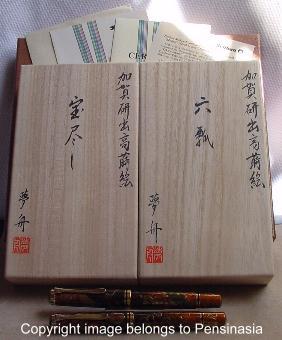 加賀研出高蒔絵
六瓢
夢舟
加賀研出高蒔絵
宝尽し
夢舟
Copyright image belongs to Pensinasia